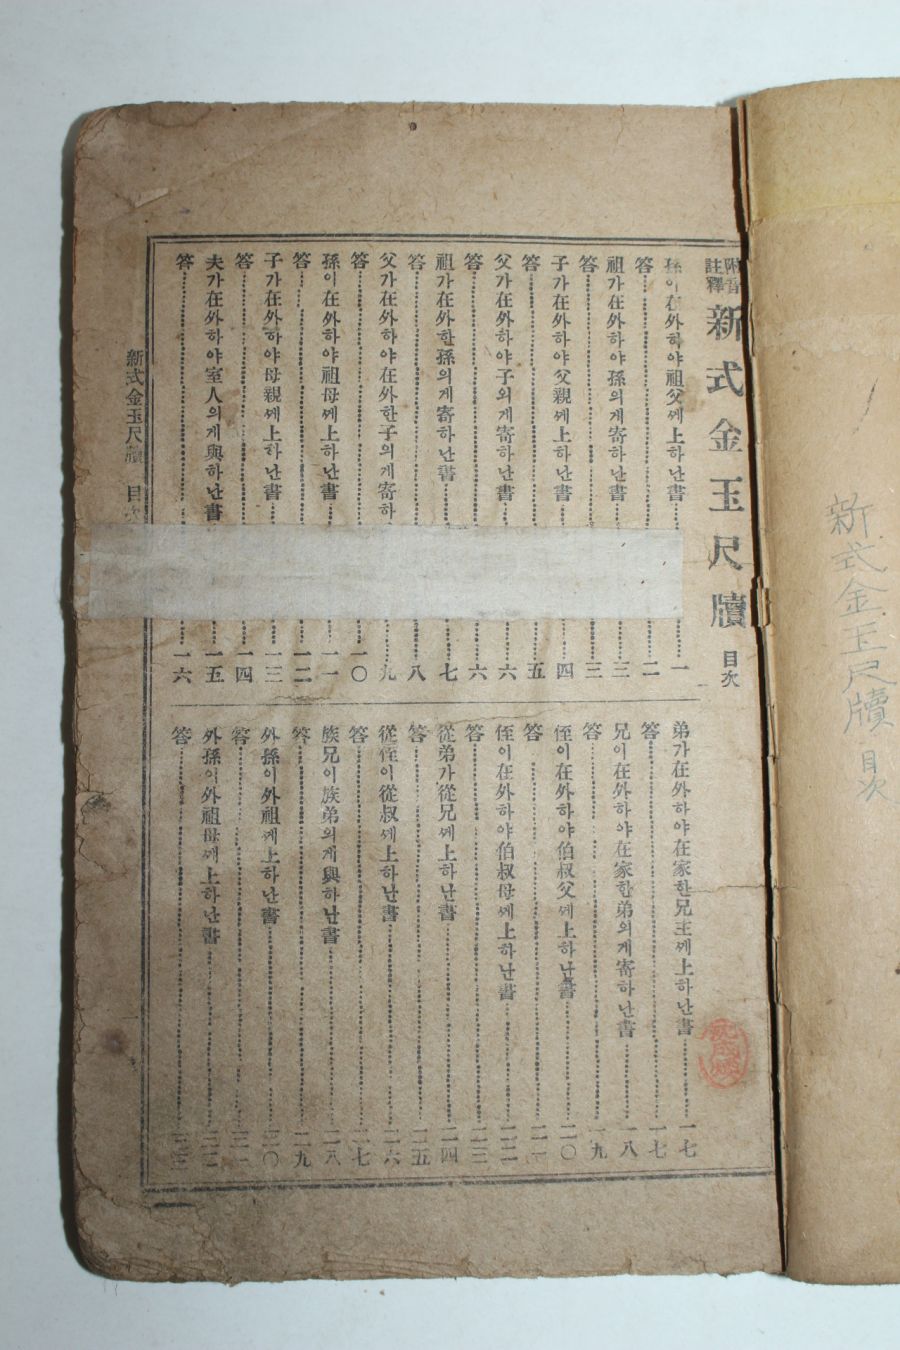 附音
註釋
新式金玉尺牘 目次
孫이在外하야祖父께上하난書 一
答 二
祖가在外하야孫의게寄하난書 三
答 三
子가在外하야父親께上하난書 四
答 五
父가在外하야子의게寄하난書 六
答 六
祖가在外한孫의게寄하난書 七
答 八
父가在外하야在外한子의게寄하 九
答 一〇
孫이在外하야祖母께上하난書 一一
答 一二
子가在外하야母親께上하난書 一三
答 一四
夫가在外하야室人의게與하난書 一五
答 一六
弟가在外하야在家한兄主께上하난書 一七
答 一七
兄이在外하야在家한弟의게寄하난書 一八
答 一九
侄이在外하야伯叔父께上하난書 二〇
答 二一
侄이在外하야伯叔母께上하난書 二二
答 二三
從弟가從兄께上하난書 二四
答 二五
從侄이從叔께上하난書 二六
答 二七
族兄이族弟의게與하난書 二八
答 二九
外孫이外祖께上하난書 三〇
答
外孫이外祖母께上하난書
答
新式金玉尺牘 目次
新式金玉尺牘 目次